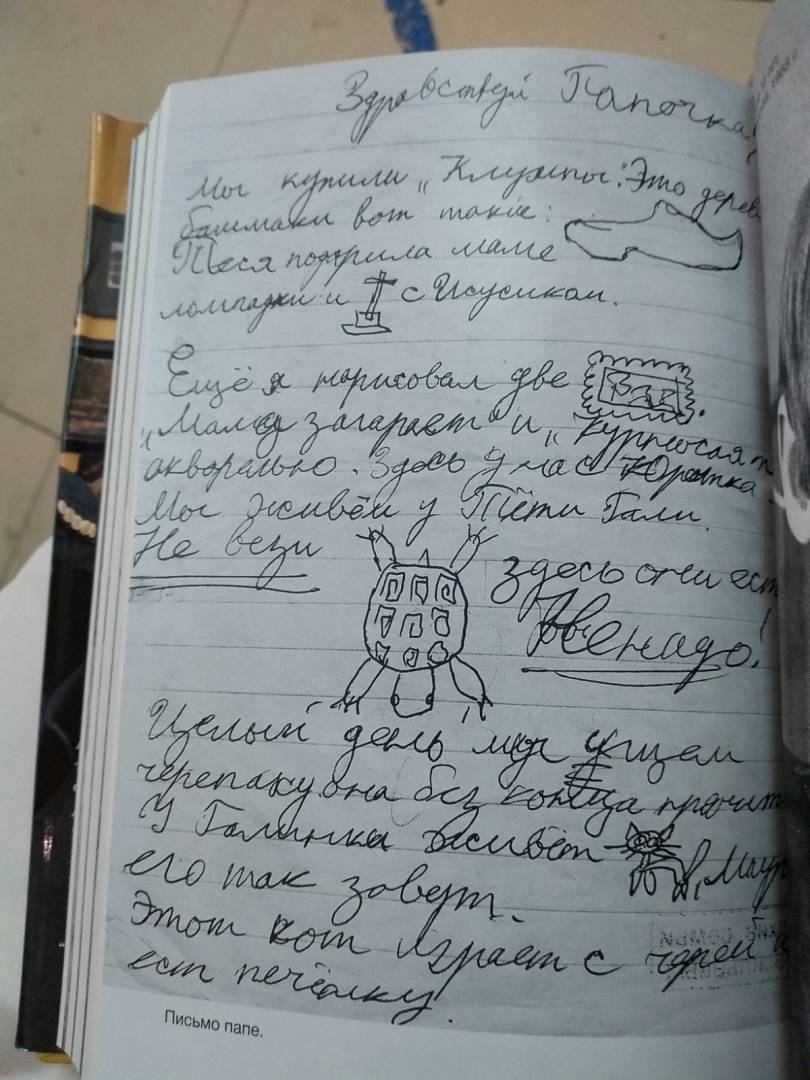 Здравствуй Папочка!
Мы купили „Клумпы". Это дерев
башмаки вот такие:
Песя подарила маме
лампадки и с Исусиком.
Ещё я нарисовал две
„Мама загарает" и „Курносая
акворелью. Здесь у нас Юрятка
Мы живём у Тёти Гали.
Не вези здесь они ест
Ненадо!
Целый день мы ищем
черепаху она без конца прячит
У Галинки живёт , Маур
его так зовут.
Этот кот играет с чере
ест печёнку.
Письмо папе.